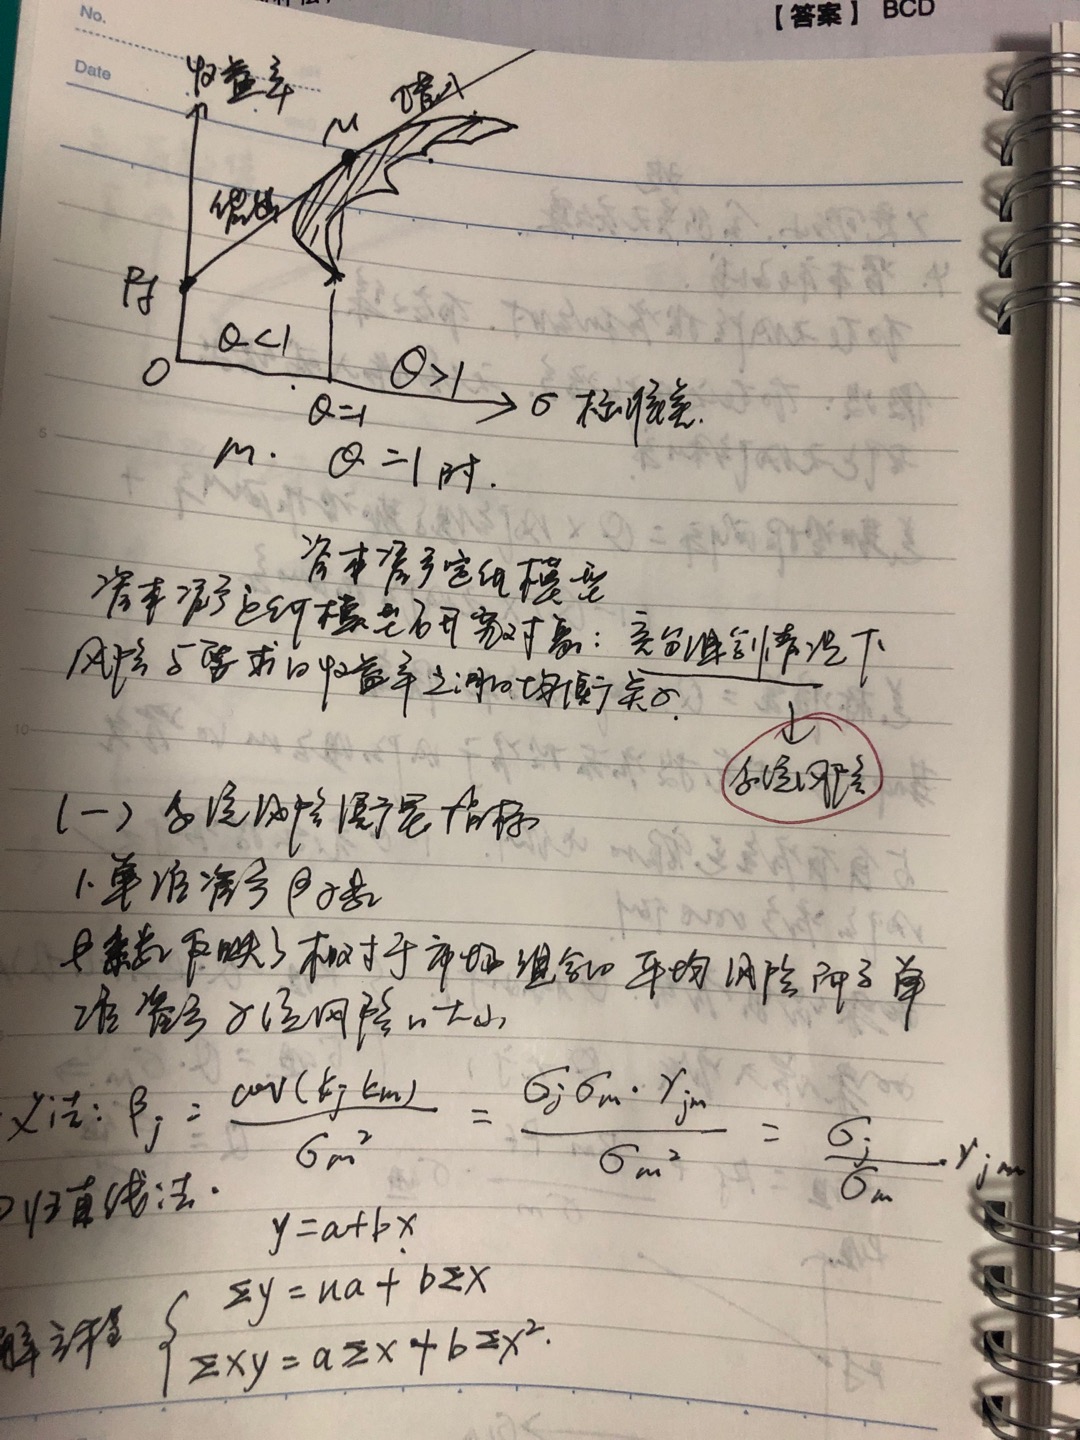 【答案】 BCD
No.
Date
收益率
M
借入
借出
Rf
Q<1
Q>1
O
Q=1
σ 标准差.
M. Q=1时.
资本资产定价模型
资本资产定价模型研究对象：充分组合情况下
风险与要求的收益率之间的均衡关系.
↓
系统风险
(一) 系统风险衡量指标
1.单项资产β系数
β系数反映了相对于市场组合的平均风险而言单
项资产系统风险的大小
义法: βj = cov(kj km) / σm² = σj σm·rjm / σm² = σj / σm · rjm
回归直线法.
y=a+bx
解方程 { Σy=na+bΣx
Σxy=aΣx+bΣx².